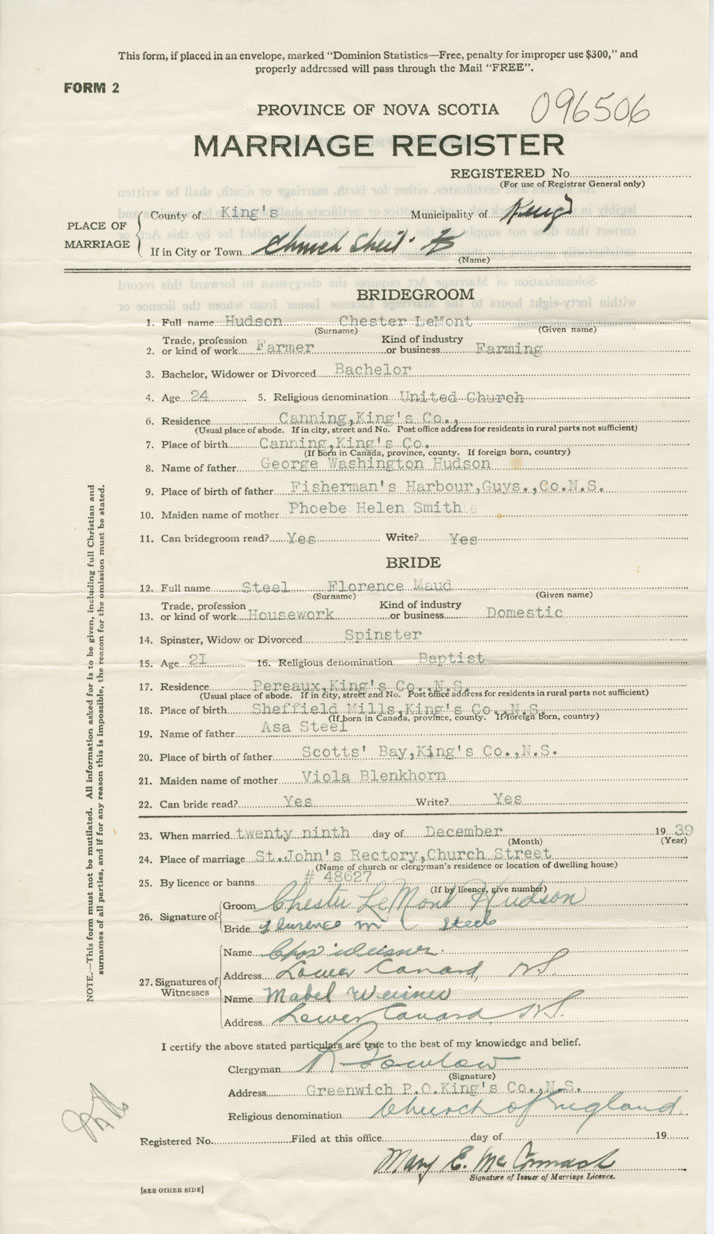 This form, if placed in an envelope, marked "Dominion Statistics—Free, penalty for improper use $300," and
properly addressed will pass through the Mail "FREE".
FORM 2
PROVINCE OF NOVA SCOTIA 096506
MARRIAGE REGISTER
REGISTERED No.
(For use of Registrar General only)
PLACE OF MARRIAGE
County of King's Municipality of Kings
If in City or Town Church Street
(Name)
BRIDEGROOM
1. Full name Hudson Chester LeMont
(Surname) (Given name)
2. Trade, profession or kind of work Farmer Kind of industry or business Farming
3. Bachelor, Widower or Divorced Bachelor
4. Age 24 5. Religious denomination United Church
6. Residence Canning,King's Co.,
(Usual place of abode. If in city, street and No. Post office address for residents in rural parts not sufficient)
7. Place of birth Canning,King's Co.
(If born in Canada, province, county. If foreign born, country)
8. Name of father George Washington Hudson
9. Place of birth of father Fisherman's Harbour,Guys.,Co.N.S.
10. Maiden name of mother Phoebe Helen Smith
11. Can bridegroom read? Yes Write? Yes
BRIDE
12. Full name Steel Florence Maud
(Surname) (Given name)
13. Trade, profession or kind of work Housework Kind of industry or business Domestic
14. Spinster, Widow or Divorced Spinster
15. Age 2I 16. Religious denomination Baptist
17. Residence Pereaux,King's Co.,N.S.
(Usual place of abode. If in city, street and No. Post office address for residents in rural parts not sufficient)
18. Place of birth Sheffield Mills,King's Co.,N.S.
(If born in Canada, province, county. If foreign born, country)
19. Name of father Asa Steel
20. Place of birth of father Scotts' Bay,King's Co.,N.S.
21. Maiden name of mother Viola Blenkhorn
22. Can bride read? Yes Write? Yes
23. When married twenty ninth day of December 19 39
(Month) (Year)
24. Place of marriage St.John's Rectory,Church Street
(Name of church or clergyman's residence or location of dwelling house)
25. By licence or banns # 48627
(If by licence, give number)
26. Signature of
Groom Chester LeMont Hudson
Bride Florence M Steel
27. Signatures of Witnesses
Name Chas Weisner
Address Lower Canard, N.S.
Name Mabel Weisner
Address Lower Canard N.S.
I certify the above stated particulars are true to the best of my knowledge and belief.
Clergyman
(Signature)
Address Greenwich P.O.King's Co.,N.S.
Religious denomination Church of England
Registered No. Filed at this office day of 19
Mary E. McCormack
Signature of Issuer of Marriage Licence.
[SEE OTHER SIDE]
NOTE.—This form must not be mutilated. All information asked for is to be given, including full Christian and
surnames of all parties, and if for any reason this is impossible, the reason for the omission must be stated.